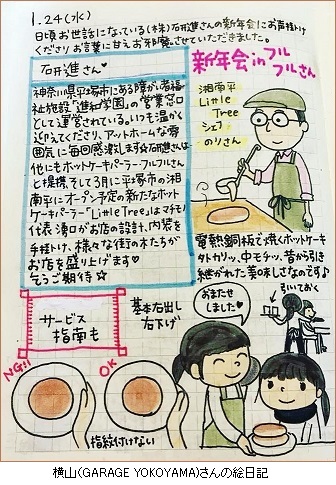 1.24(水)
日頃お世話になっている(株)研進さんの新年会にお声掛け
くださりお言葉に甘えお邪魔させていただきました。
研進さん♡
神奈川県平塚市にある障がい者福
祉施設「進和学園」の営業窓口
として運営されている。いつも温かく
迎えてくださり、アットホームな雰
囲気に毎回感激します☆研進さんは
他にもホットケーキパーラーフルフルさん
と提携、そして3月に平塚市の湘
南平にオープン予定の新たなホット
ケーキパーラー「Little Tree」はマチモノ
代表 湧口がお店の設計、内装を
手掛け、様々な街の木たちが
お店を盛り上げます♡
乞うご期待☆
新年会inフル
フルさん
湘南平
Little
Tree
シェフ
のりさん
電熱銅板で焼くホットケーキ
外カリッ、中モチッ、昔から引き
継がれた美味しさなのです♪
サービス
指南も
基本右出し
右下げ
おまたせ
しました♥
引いておく
NG!!
OK
指紋付けない
横山(GARAGE YOKOYAMA)さんの絵日記